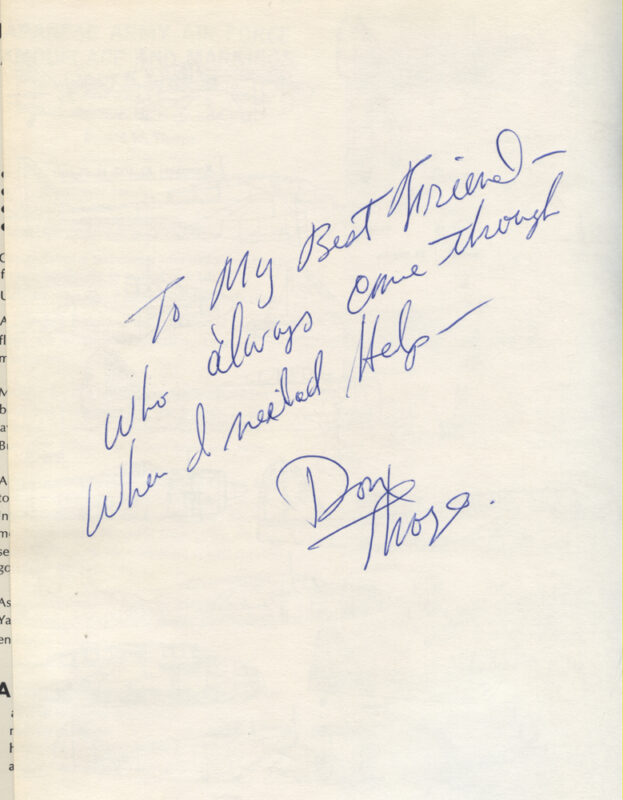 To My Best Friend-
who always came through
When I needed Help-
Don